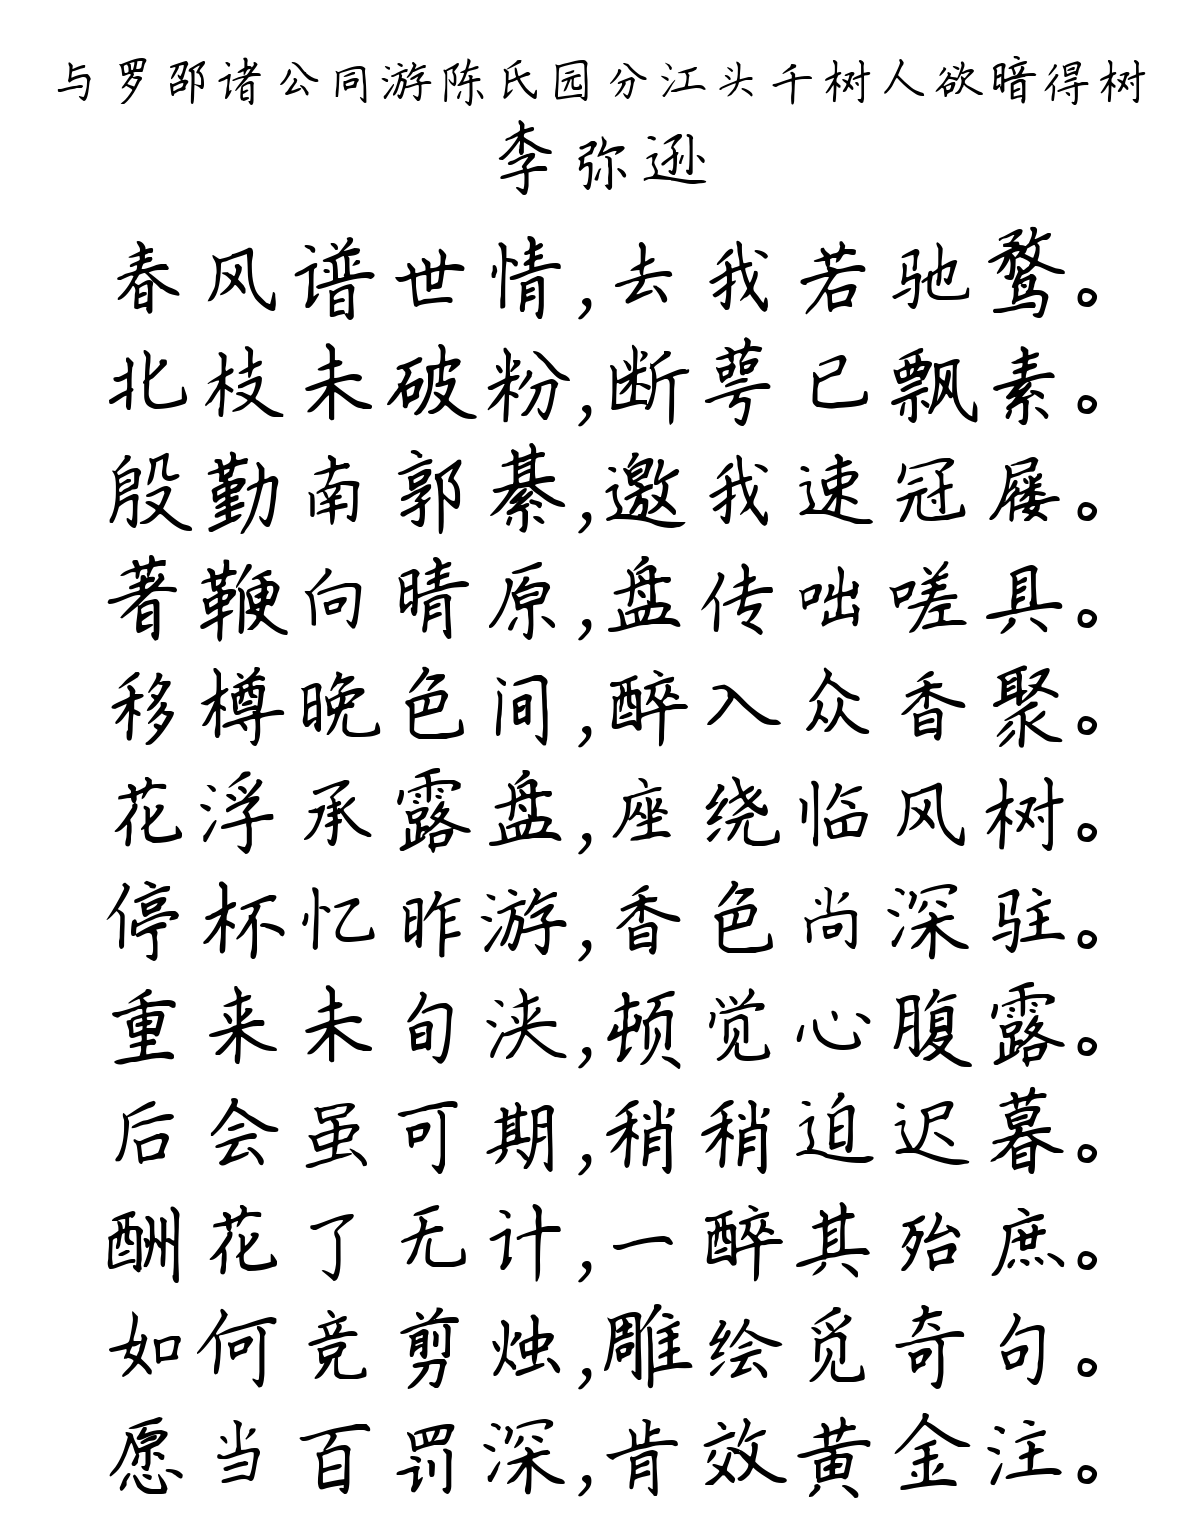 与罗邵诸公同游陈氏园分江头千树人欲暗得树
李弥逊
春风谱世情,去我若驰鹜。
北枝未破粉,断萼已飘素。
殷勤南郭綦,邀我速冠屦。
著鞭向晴原,盘传咄嗟具。
移樽晚色间,醉入众香聚。
花浮承露盘,座绕临风树。
停杯忆昨游,香色尚深驻。
重来未旬浃,顿觉心腹露。
后会虽可期,稍稍迫迟暮。
酬花了无计,一醉其殆庶。
如何竞剪烛,雕绘觅奇句。
愿当百罚深,肯效黄金注。